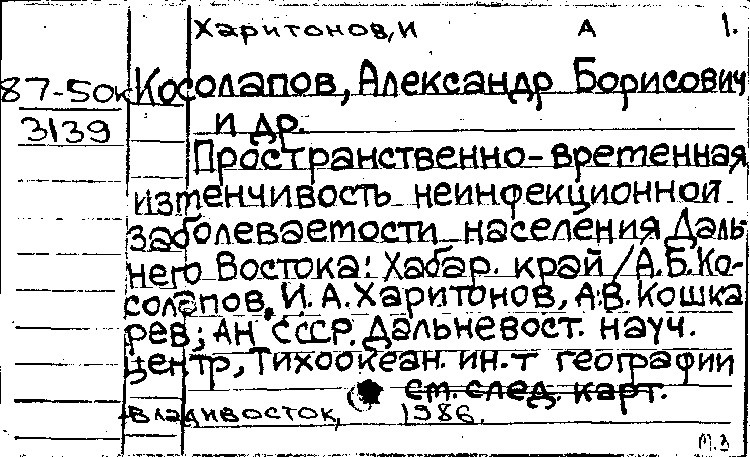 Харитонов, И А 1.
87-50к Косолапов, Александр Борисович
3139 и др.
Пространственно-временная
изменчивость неинфекционной
заболеваемости населения Даль-
него Востока: Хабар. край / А.Б. Ко-
солапов, И. А. Харитонов, А.В. Кошка
рев; Ан СССР. Дальневост. науч.
центр, Тихоокеан. ин-т географии
см. след. карт.
Владивосток, 1986.
М.З